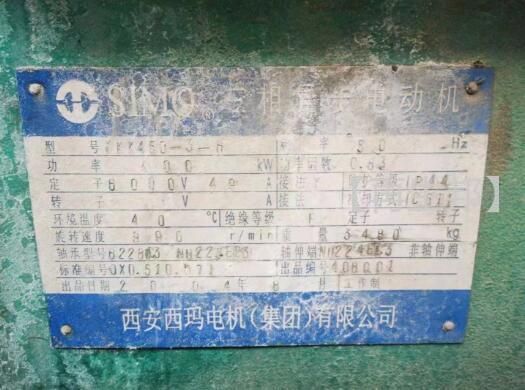 SIMO® 三相异步电动机
型号 YKK450-3-6 频率 50 Hz
功率 400 kW 功率因数 0.83
定子 6000 V 49 A 接法 Y 防护等级 IP44
转子 V A 接法 冷却方式 IC611
环境温度 40 ℃ 绝缘等级 F 定子 转子
旋转速度 990 r/min 重量 3480 kg
轴承型号 轴伸端 非轴伸端
标准编号 出品编号
出品日期 2004年 月 工作制
西安西玛电机(集团)有限公司